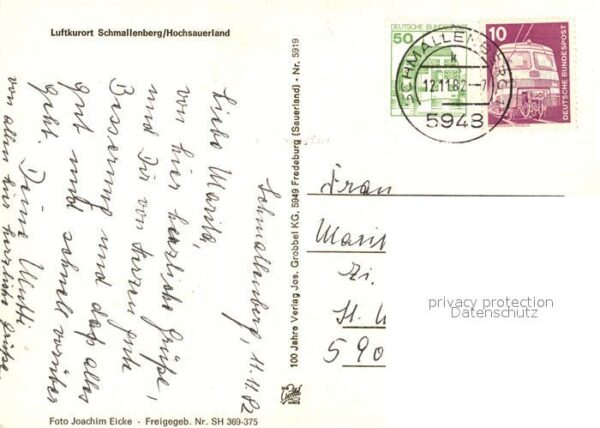 Luftkurort Schmallenberg/Hochsauerland
Schmallenberg, 11.11.82
Liebe Marita,
von hier herzliche Grüße,
und Dir von Herzen gute
Besserung und daß alles
gut und schnell vorüber
geht. Deine Mutti
von allen hier herzliche Grüße.
Foto Joachim Eicke - Freigegeb. Nr. SH 369-375
100 Jahre Verlag Jos. Grobbel KG, 5949 Fredeburg (Sauerland) - Nr. 5919
DEUTSCHE BUNDESPOST
50
10
DEUTSCHE BUNDESPOST
SCHMALLENBERG 1
k
12.11.82-7
5948
Frau
Marit
Zi.
St.
590
privacy protection
Datenschutz